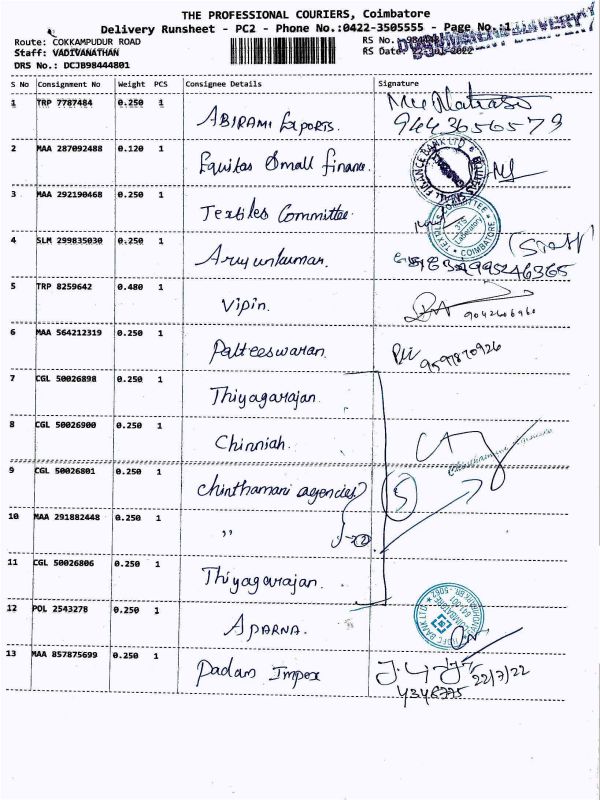 THE PROFESSIONAL COURIERS, Coimbatore
Delivery Runsheet - PC2 - Phone No.:0422-3505555 - Page No.:1
Route: COKKAMPUDUR ROAD
RS No.
Staff: VADIVANATHAN
RS Date: 22 Jul 2022
DRS No.: DCJB98444801
S No Consignment No Weight PCS Consignee Details Signature
1 TRP 7787484 0.250 1 ABIRAMI Exports.
9443656579
2 MAA 287092488 0.120 1 Equitas Small finance.
3 MAA 292190468 0.250 1 Textiles Committee
4 SLM 299835030 0.250 1 Aryunkumar.
5 TRP 8259642 0.480 1 Vipin.
6 MAA 564212319 0.250 1 Patteeswaran.
9597870926
7 CGL 50026898 0.250 1 Thiyagarajan.
8 CGL 50026900 0.250 1 Chinniah.
9 CGL 50026801 0.250 1 Chinthamani agencies 5
10 MAA 291882448 0.250 1 ,,
11 CGL 50026806 0.250 1 Thiyagarajan.
12 POL 2543278 0.250 1 APARNA.
13 MAA 857875699 0.250 1 Padam Impex 22/7/22